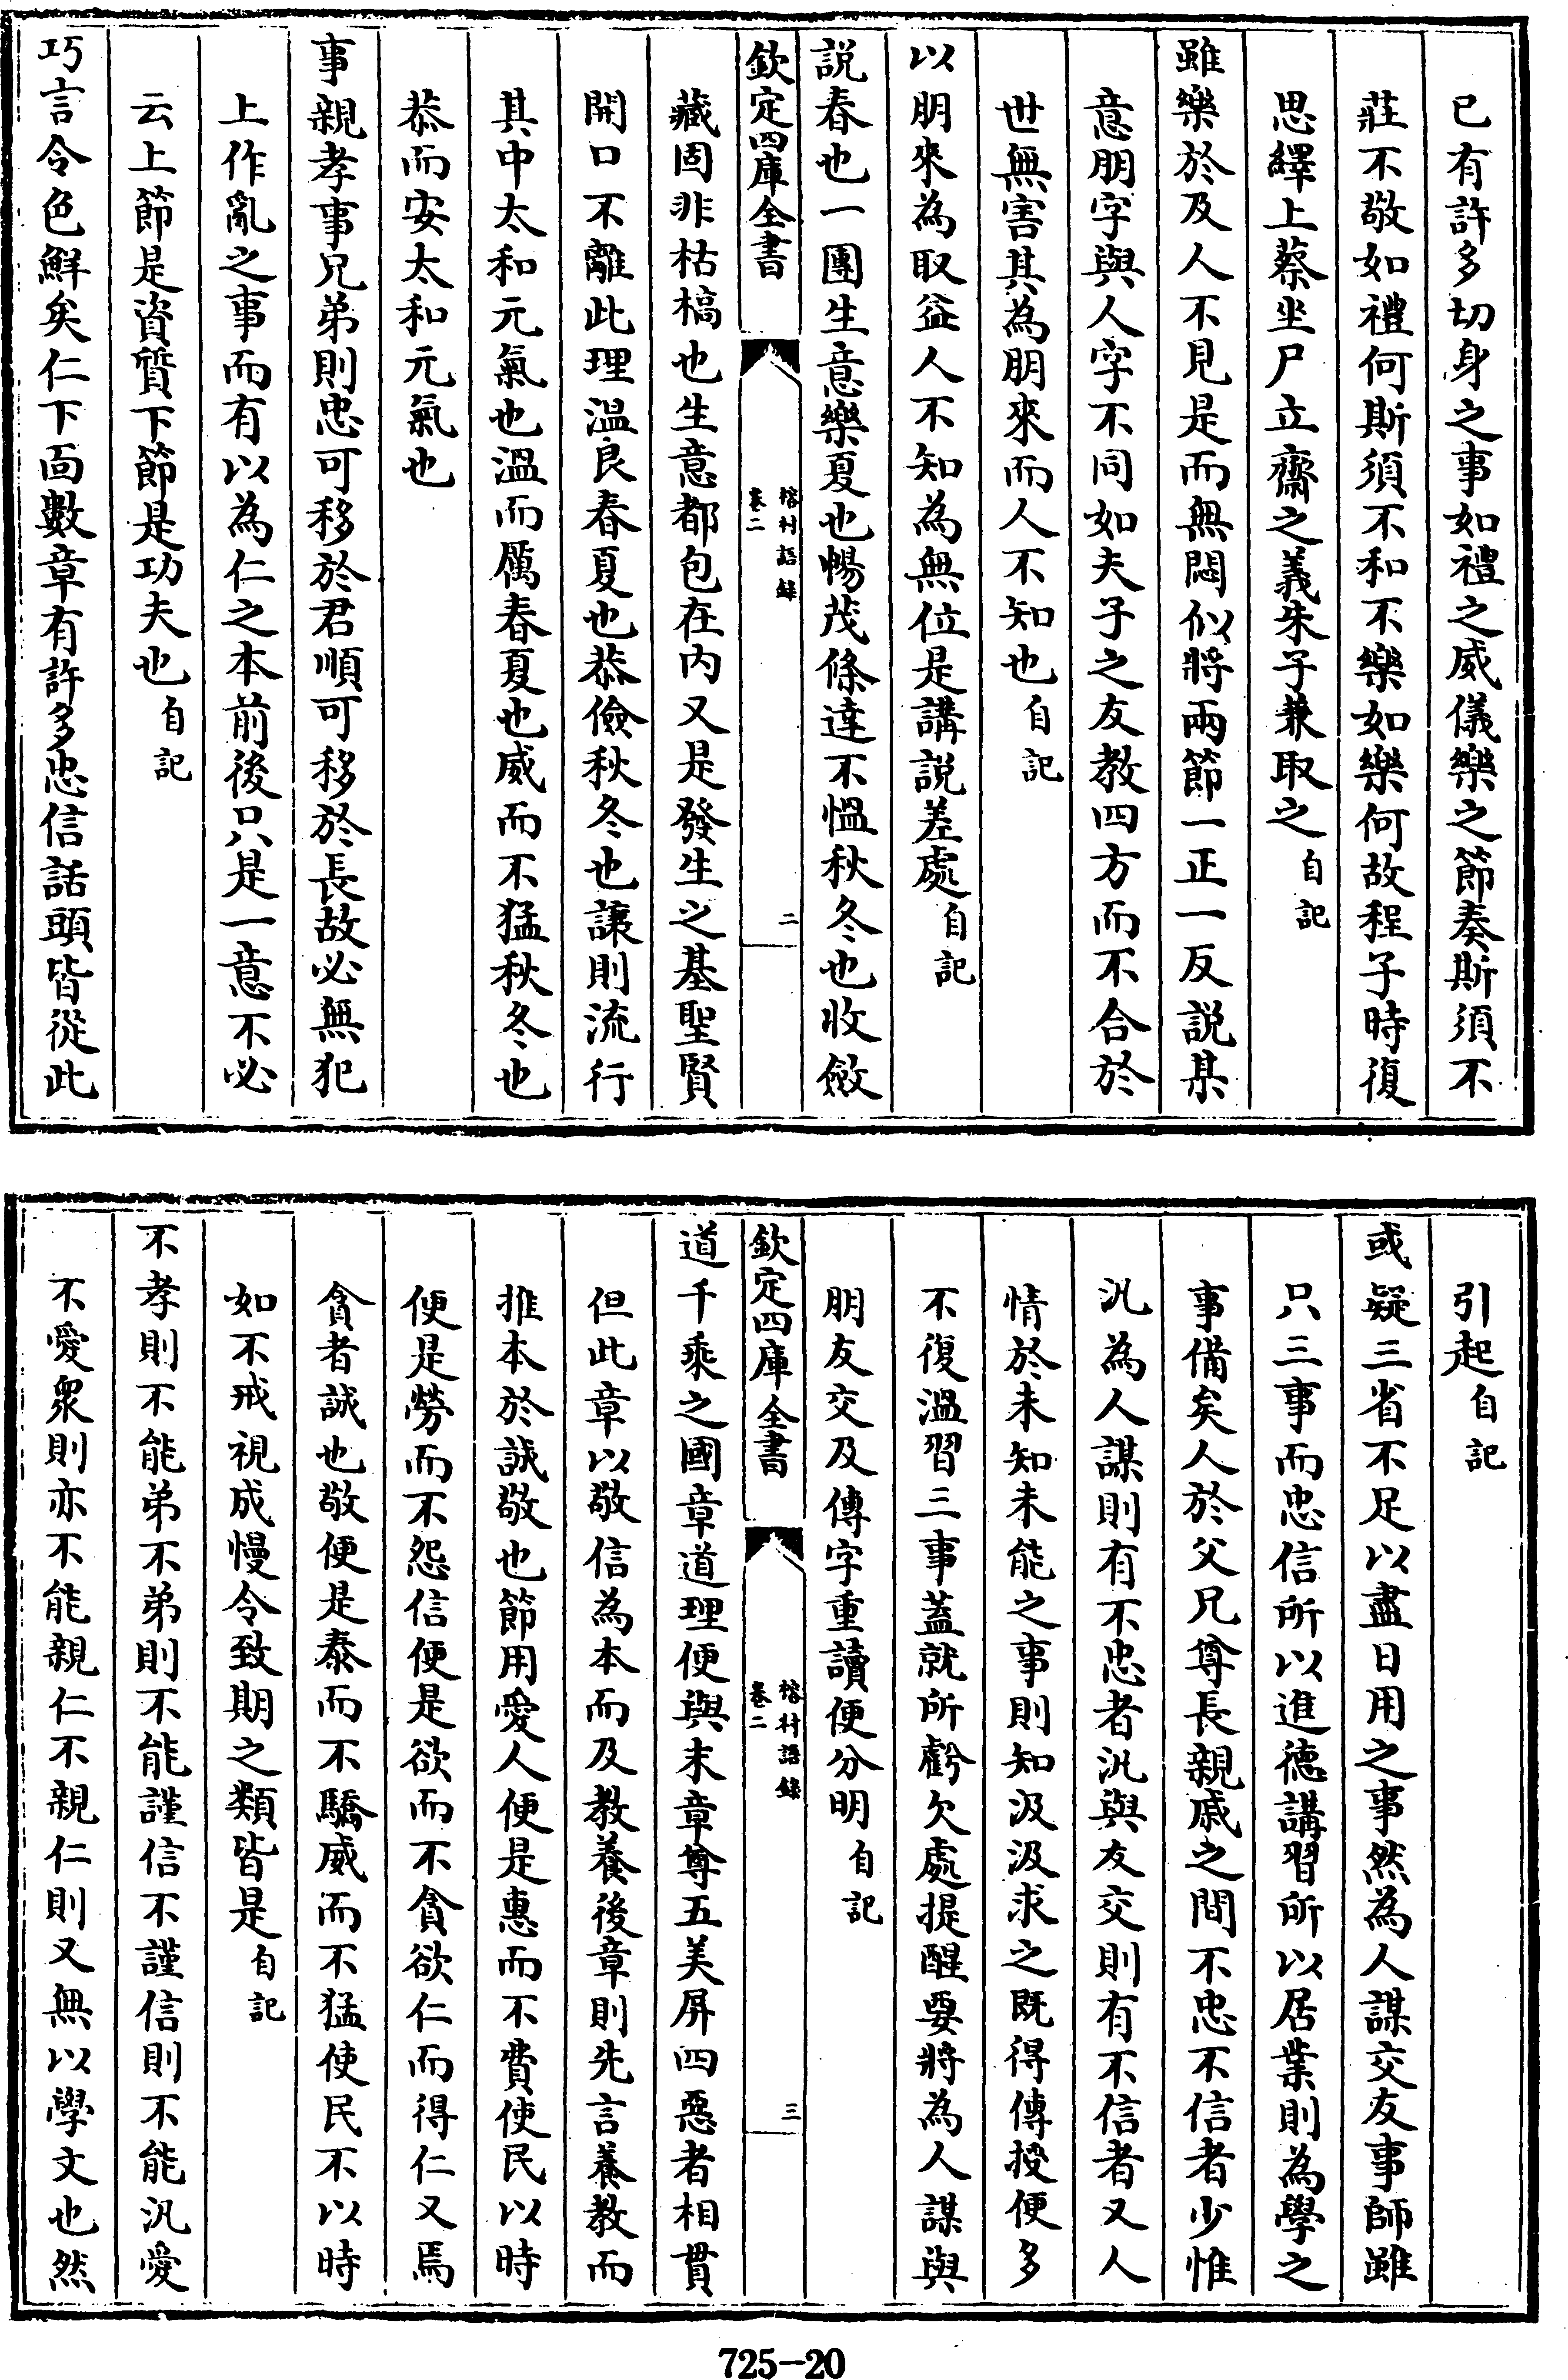 已有許多切身之事如禮之威儀樂之節奏斯須不
莊不敬如禮何斯須不和不樂如樂何故程子時復
思繹上蔡坐尸立齋之義朱子兼取之自記
雖樂於及人不見是而無悶似將兩節一正一反説某
意朋字與人字不同如夫子之友教四方而不合於
世無害其為朋來而人不知也自記
以朋來為取益人不知為無位是講説差處自記
説春也一團生意樂夏也暢茂條達不慍秋冬也收斂
欽定四庫全書
榕村語錄
卷二
二
藏固非枯槁也生意都包在内又是發生之基聖賢
開口不離此理温良春夏也恭儉秋冬也讓則流行
其中太和元氣也溫而厲春夏也威而不猛秋冬也
恭而安太和元氣也
事親孝事兄弟則忠可移於君順可移於長故必無犯
上作亂之事而有以為仁之本前後只是一意不必
云上節是資質下節是功夫也自記
巧言令色鮮矣仁下面數章有許多忠信話頭皆從此
引起自記
或疑三省不足以盡日用之事然為人謀交友事師雖
只三事而忠信所以進德講習所以居業則為學之
事備矣人於父兄尊長親戚之間不忠不信者少惟
汎為人謀則有不忠者汎與友交則有不信者又人
情於未知未能之事則知汲汲求之既得傳授便多
不復溫習三事蓋就所虧欠處提醒要將為人謀與
朋友交及傳字重讀便分明自記
欽定四庫全書
榕村語錄
卷二
三
道千乘之國章道理便與末章尊五美屏四惡者相貫
但此章以敬信為本而及教養後章則先言養教而
推本於誠敬也節用愛人便是惠而不費使民以時
便是勞而不怨信便是欲而不貪欲仁而得仁又焉
貪者誠也敬便是泰而不驕威而不猛使民不以時
如不戒視成慢令致期之類皆是自記
不孝則不能弟不弟則不能謹信不謹信則不能汎愛
不愛衆則亦不能親仁不親仁則又無以學文也然
725-20